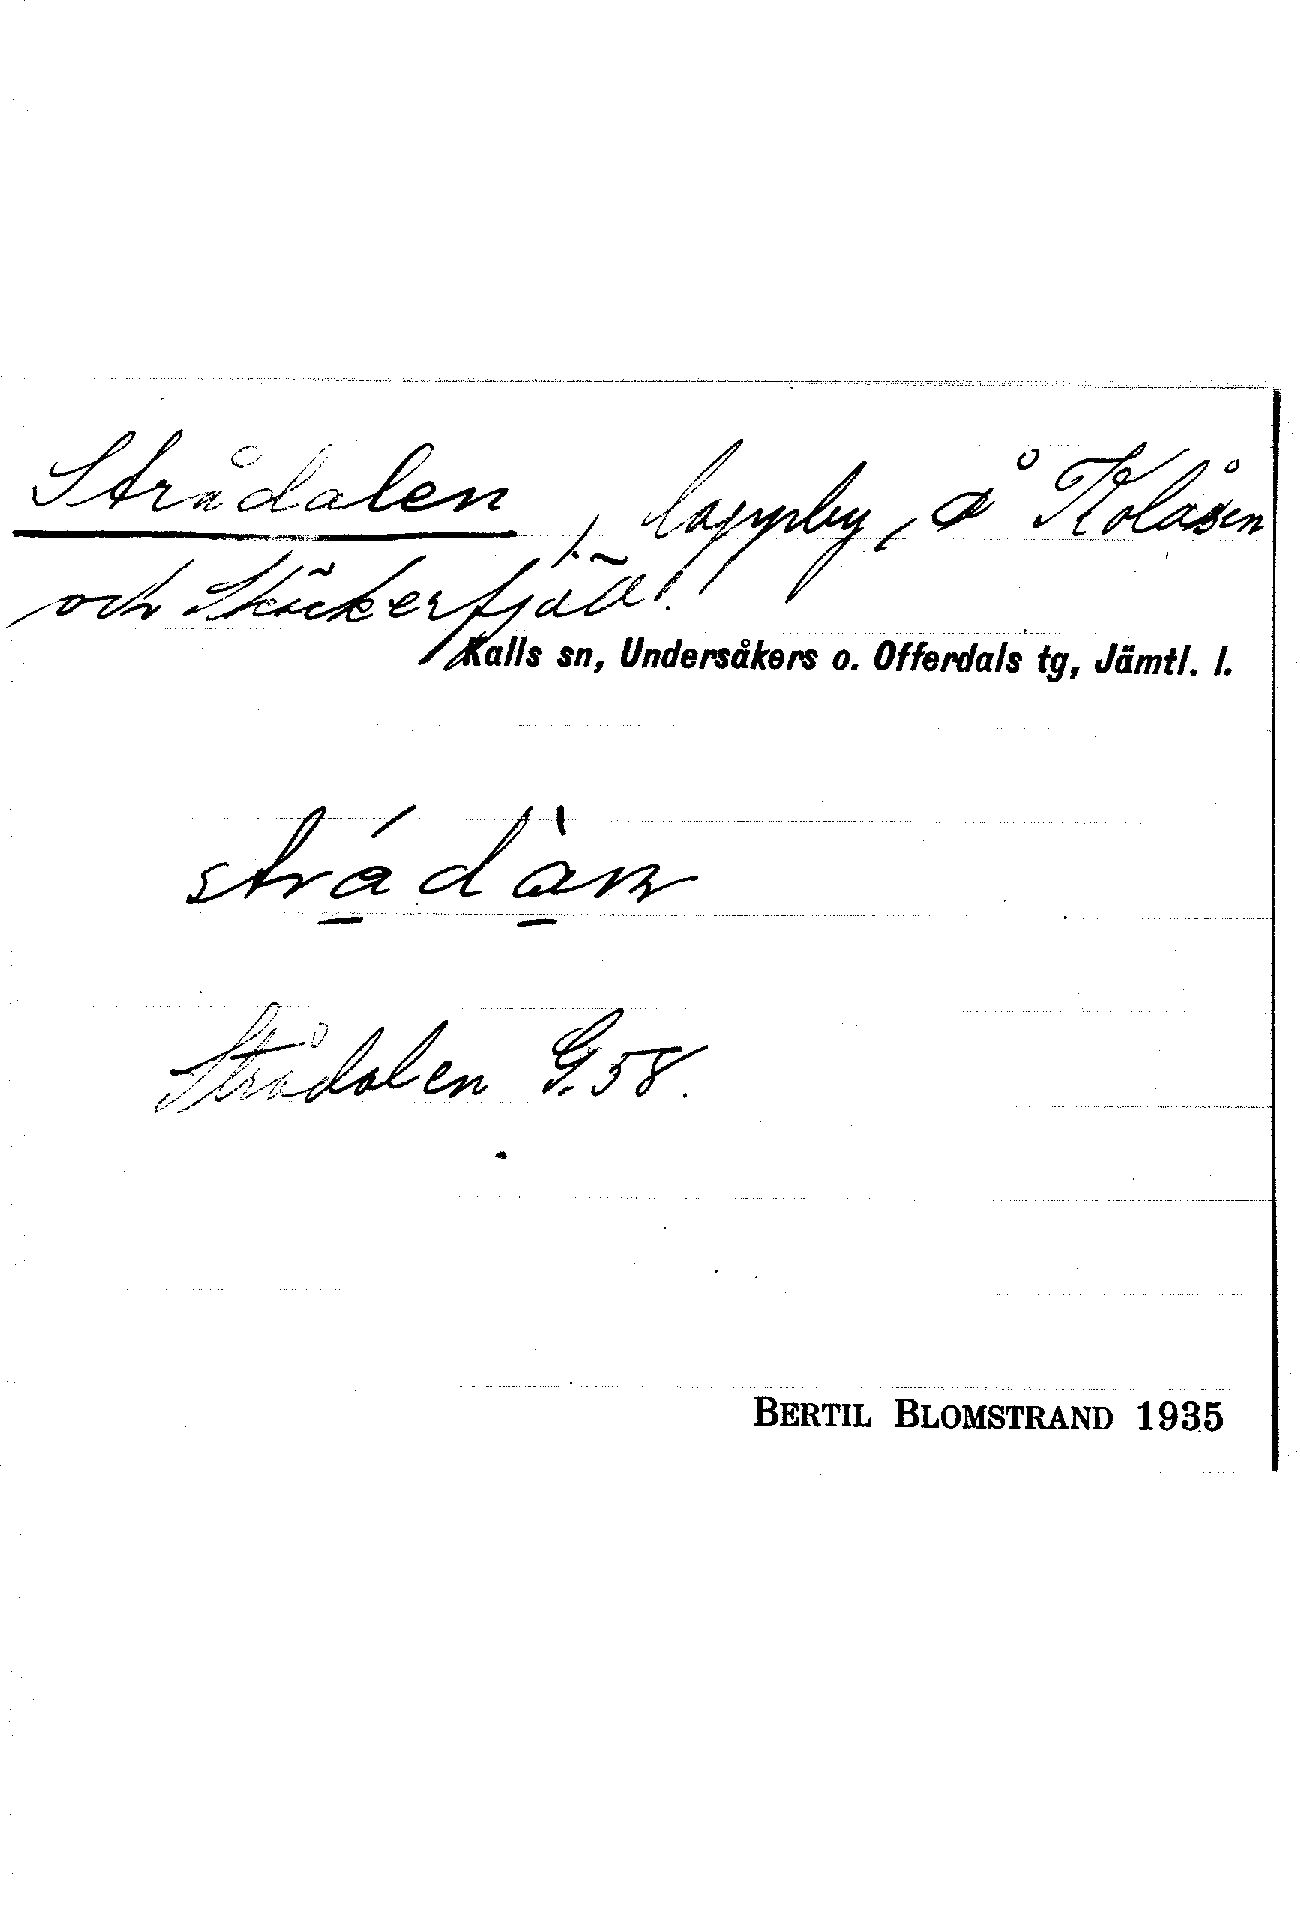 Strådalen, lappby, å Kolåsen
och Sköckerfjäll.
Kalls sn, Undersåkers o. Offerdals tg, Jämtl. l.
strá̱dà̱n
Strådalen G. 58.
BERTIL BLOMSTRAND 1935